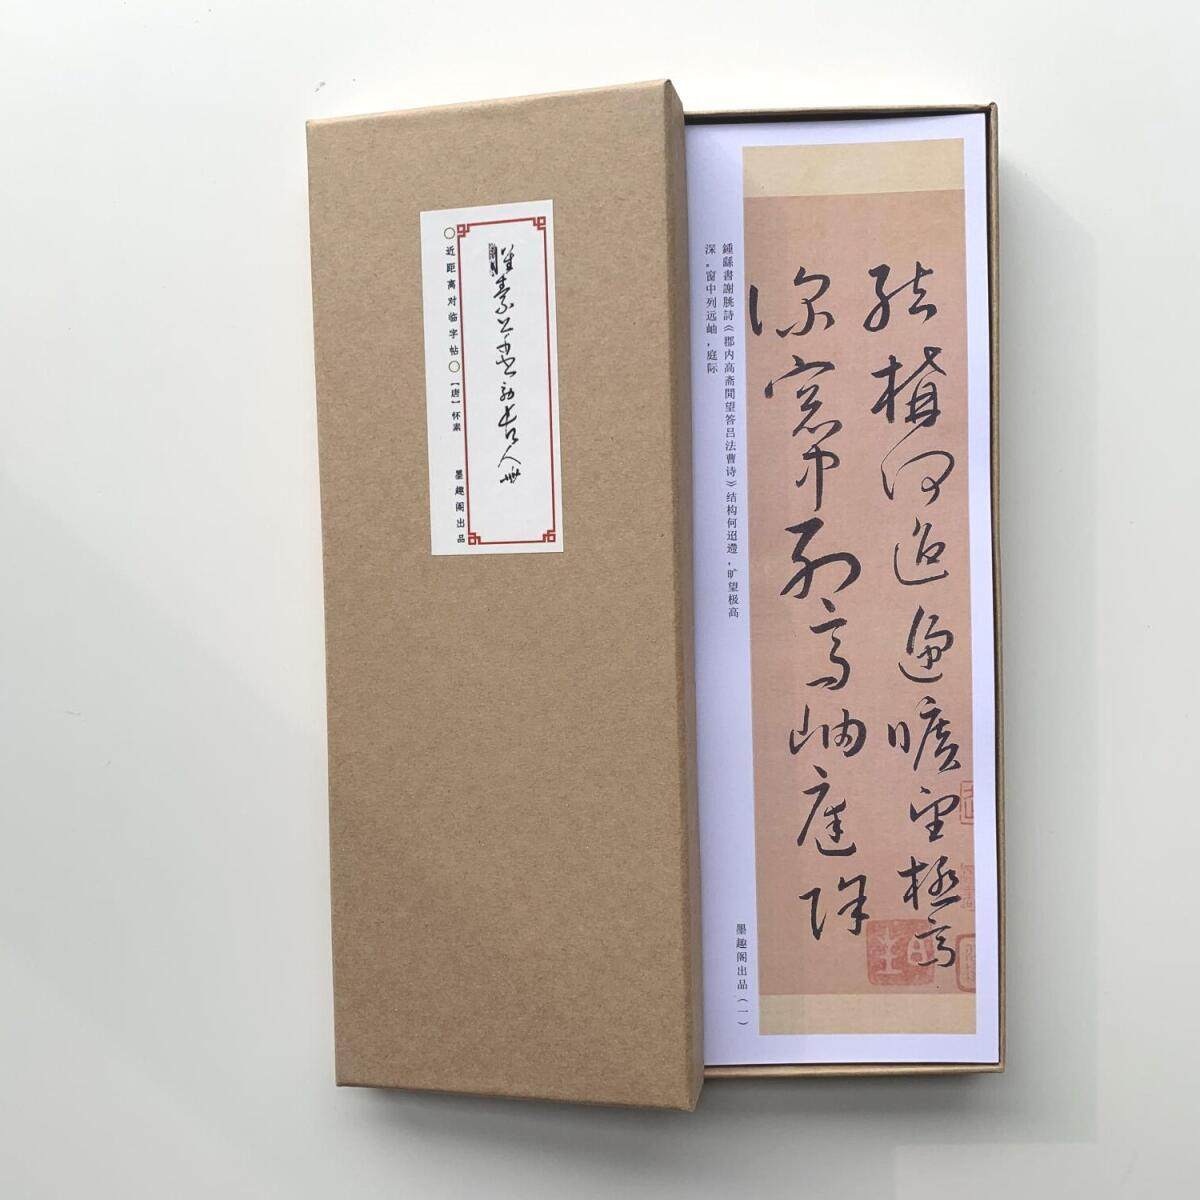 〇近距离对临字帖〇【唐】怀素
墨趣阁出品
結構何迢遰曠望極高
深窗中列高岫庭際
鍾繇書謝朓詩《郡内高斋閒望答吕法曹诗》结构何迢遰,旷望极高
深。窗中列远岫,庭际
墨趣阁出品(一)